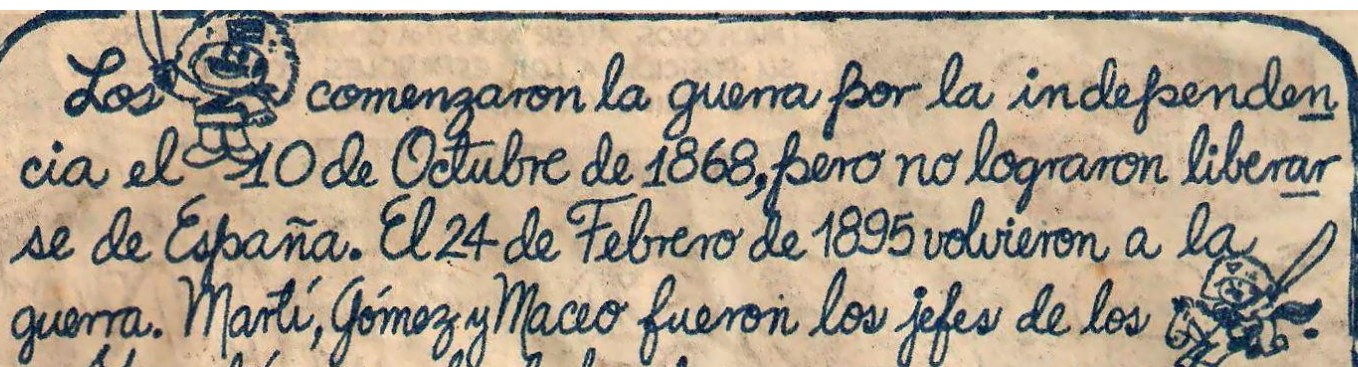 Los comenzaron la guerra por la independen
cia el 10 de Octubre de 1868, pero no lograron liberar
se de España. El 24 de Febrero de 1895 volvieron a la
guerra. Martí, Gómez y Maceo fueron los jefes de los .